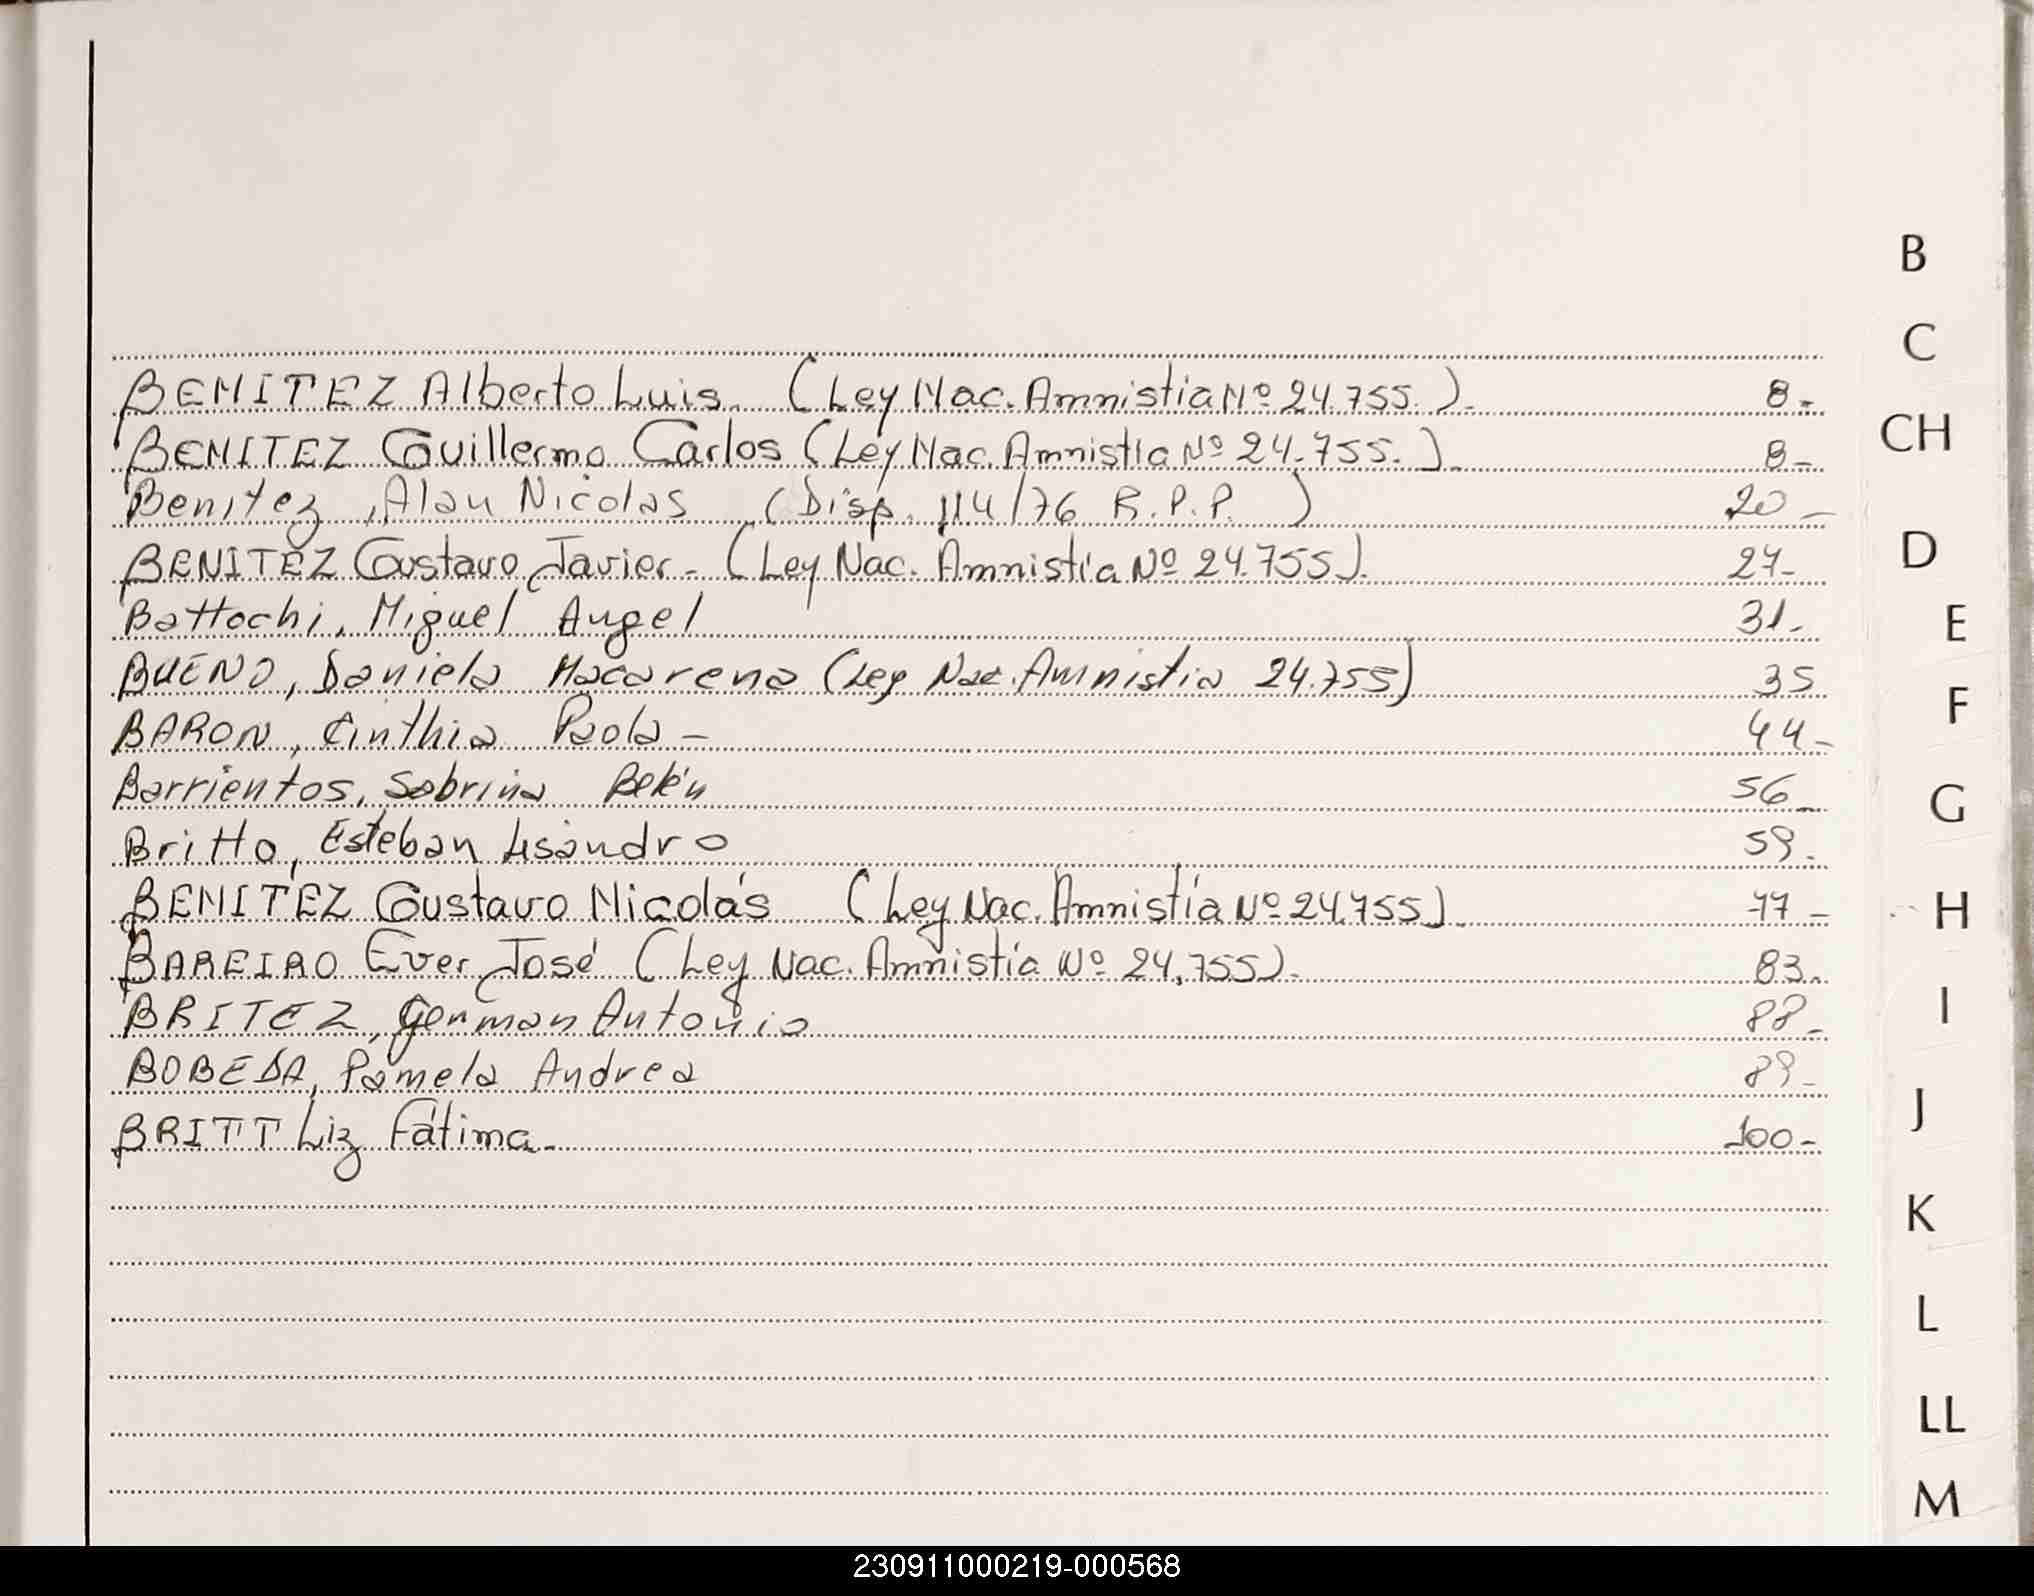 BENITEZ Alberto Luis. (Ley Nac. Amnistia Nº 24.755.). 8.-
BENITEZ Guillermo Carlos (Ley Nac. Amnistia Nº 24.755.). 8-
Benitez, Alan Nicolas (Disp. 114/76 R.P.P.) 20-
BENITEZ Gustavo Javier - (Ley Nac. Amnistía Nº 24.755). 27-
Battochi, Miguel Angel 31-
BUENO, Daniela Macarena (Ley Nac. Amnistia 24.755) 35
BARON, Cinthia Paola - 44-
Barrientos, Sabrina Belén 56-
Britto, Esteban Lisandro 59.
BENITEZ Gustavo Nicolás (Ley Nac. Amnistía Nº 24.755). 77-
BAREIRO Ever José (Ley Nac. Amnistía Nº 24.755). 83.
BRITEZ, German Antonio 88-
BOBEDA, Pamela Andrea 89-
BRITT Liz Fátima. 100-
B
C
CH
D
E
F
G
H
I
J
K
L
LL
M
230911000219-000568